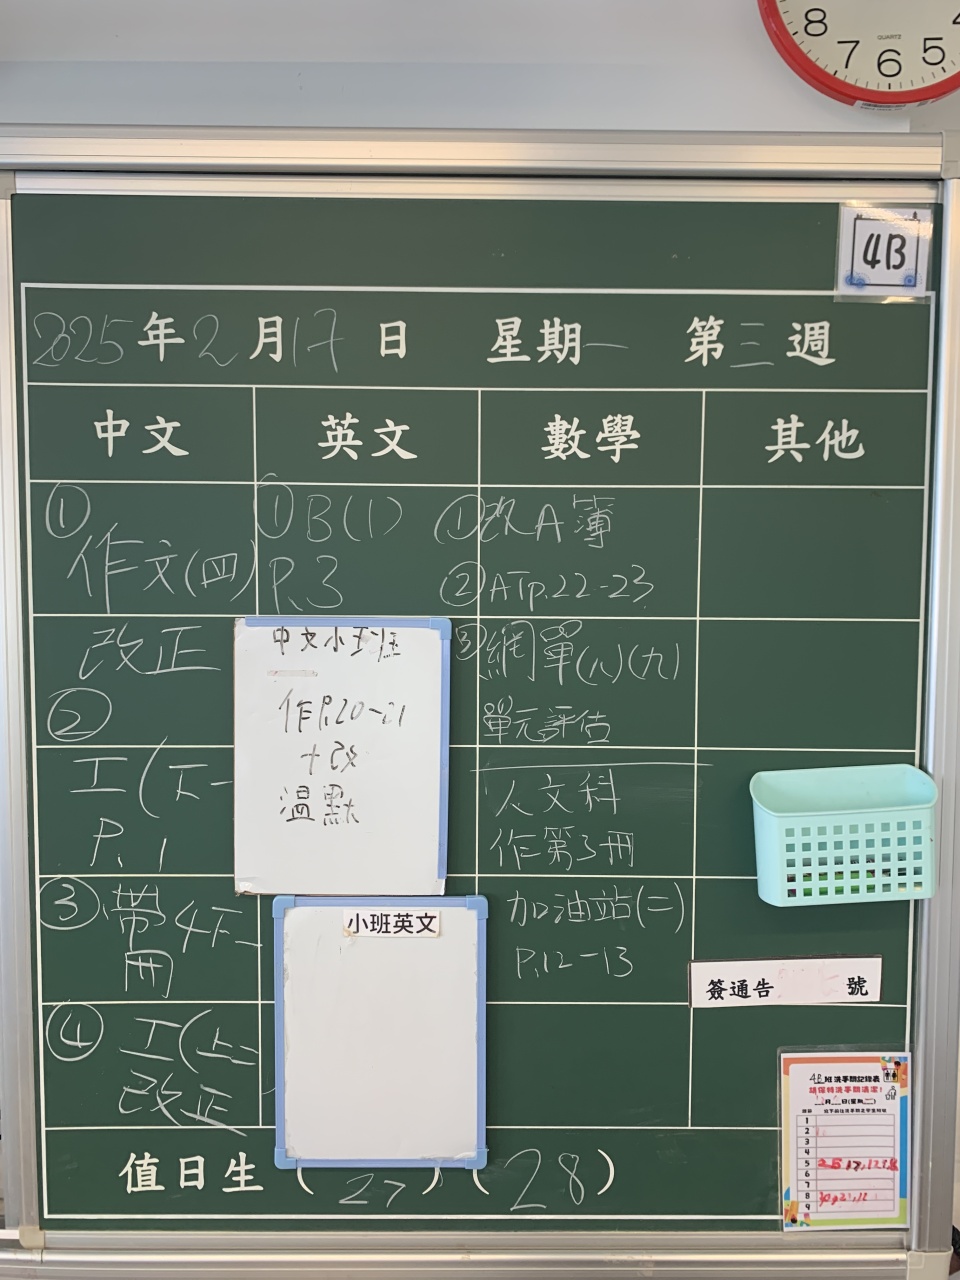 8 7 6 5 4
QUARTZ
4B
2025年2月17日 星期一 第三週
中文 英文 數學 其他
①
作文(四)
改正
②
工(下一
P.1
③帶4下一
冊
④工(上二
改正
①B(1)
P.3
中文小班
作P.20-21
+改
溫默
小班英文
①改A簿
②ATp.22-23
③網單(八)(九)
單元評估
人文科
作第3冊
加油站(二)
P.12-13
簽通告 號
4B班洗手間記錄表
請保持洗手間清潔!
月 日(星期 )
1
2
3
4
5
6
7
8
9
值日生(27)(28)